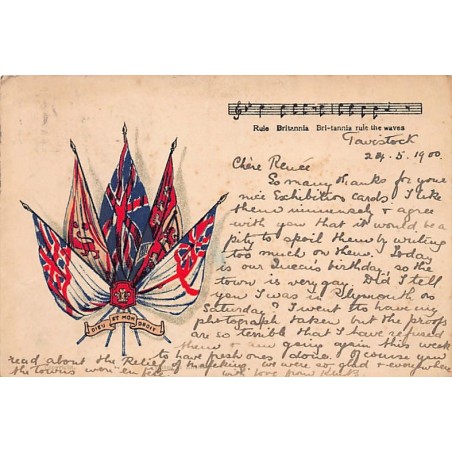 Rule Britannia Bri-tannia rule the waves
Tavistock
24.5.1900.
Chère Renée
So many thanks for your
nice Exhibition cards I like
them immensely & agree
with you that it would be a
pity to spoil them by writing
too much on them. Today
is our Queens birthday so the
town is very gay. Did I tell
you I was in Plymouth on
Saturday? I went to have my
photograph taken but the proofs
are so terrible that I have refused
them & am going again this week
to have fresh ones done. Of course you
read about the Relief of Mafeking. we were so glad & everywhere
the towns were en
with love from
DIEU ET MON DROIT